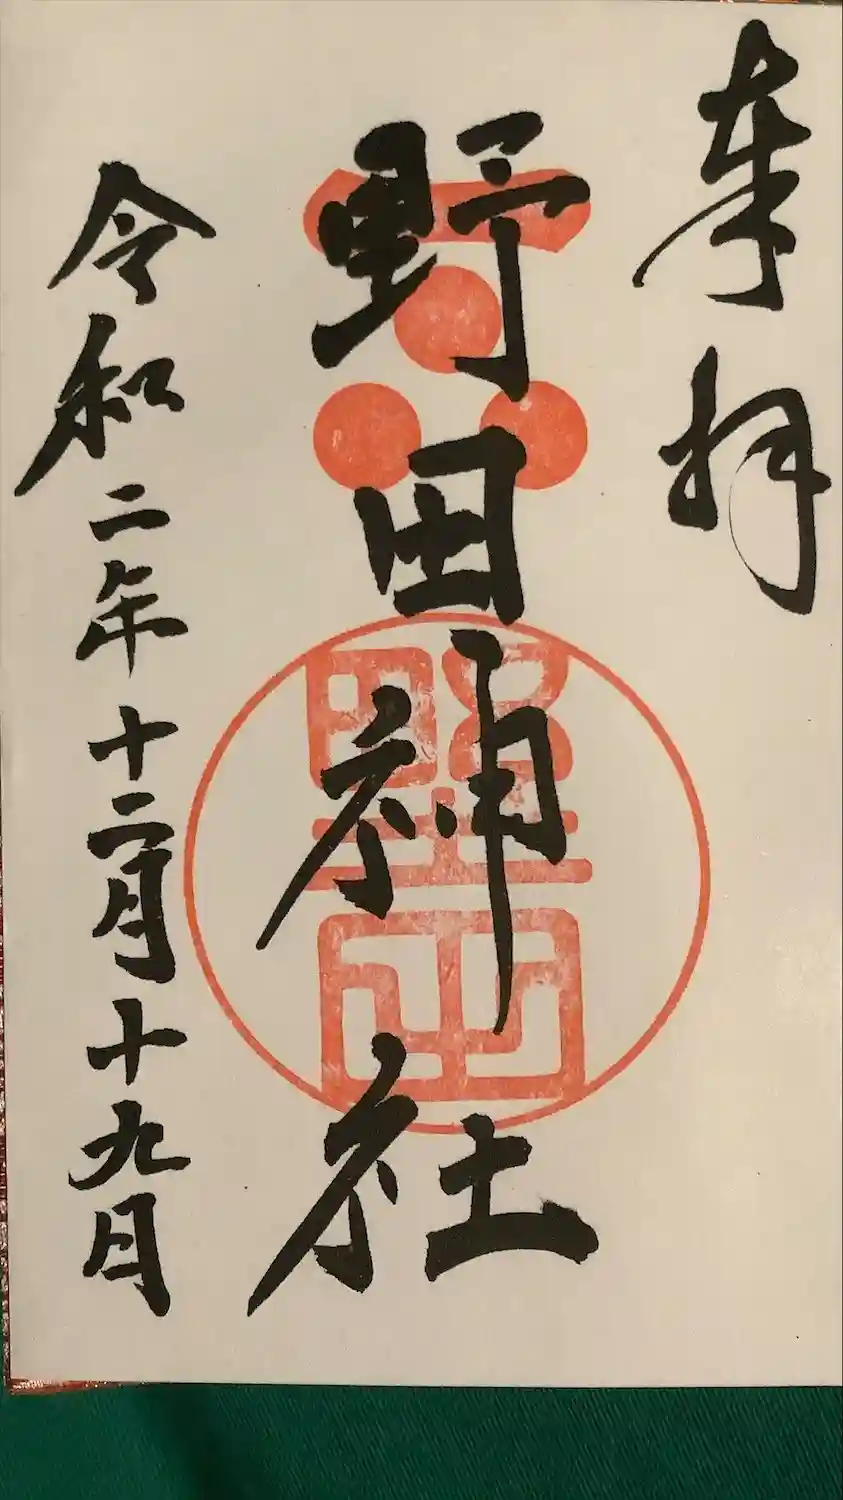 奉拝
野田神社
野田
令和二年十二月十九日